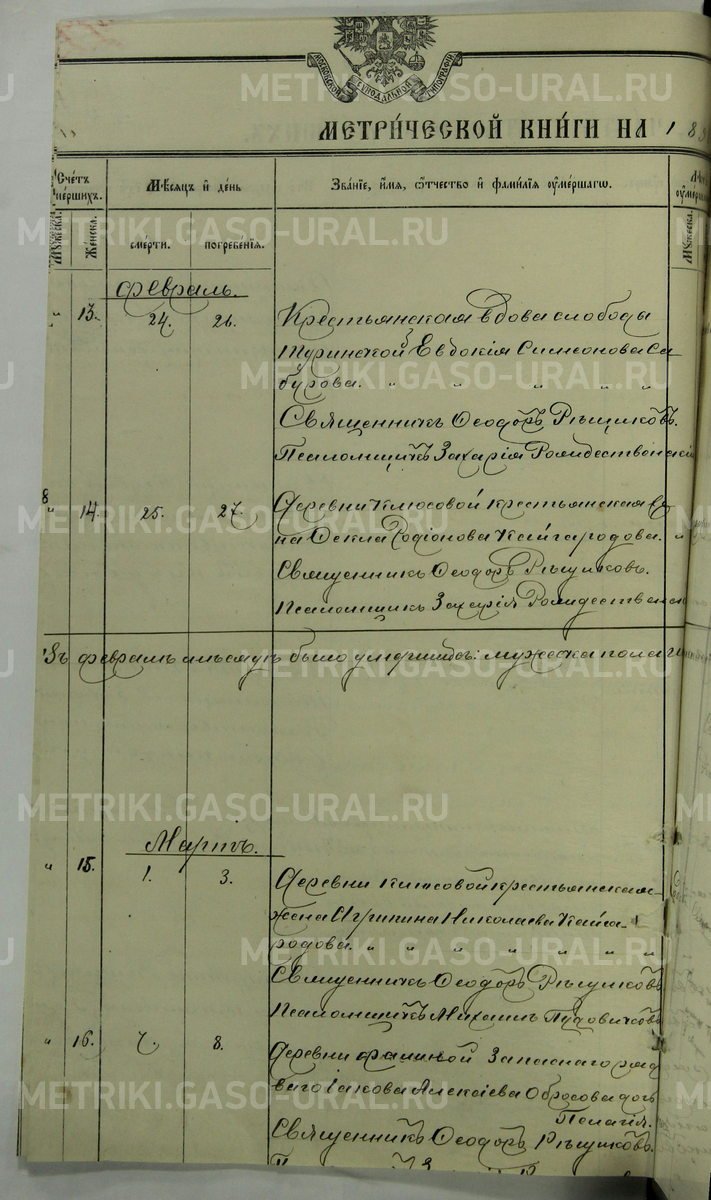 МОСКОВСКОЙ СУНОДАЛЬНОЙ ТИПОГРАФІИ
МЕТРИ́ЧЕСКОЙ КНИ́ГИ НА 188
Счетъ ᲂумершихъ.
Мѣсяцъ и день
Званіе, имя, отчество и фамилія ᲂумершагѡ.
Мужеска.
Женска.
смерти.
погребенія.
Мужеска.
Февраль.
" 13. 24. 26. Крестьянская вдова слободы
Туринской Евдокія Симеонова Са-
бурова. " " " " "
Священникъ Ѳеодоръ Рѣщиковъ.
Псаломщикъ Захарія Рождественскій
" 14. 25. 27. Деревни Клюсовой крестьянская
Ѳекла Родіонова Кайгородова. "
Священникъ Ѳеодоръ Рѣщиковъ.
Псаломщикъ Захарія Рождественскій
Въ февралѣ мѣсяцѣ было умершихъ: мужеска пола
Мартъ.
" 15. 1. 3. Деревни Клюсовой крестьянская
жена Агрипина Николаева Кайго-
родова. " " " " " "
Священникъ Ѳеодоръ Рѣщиковъ
Псаломщикъ Михаилъ Пудовичковъ
" 16. 7. 8. Деревни Фалиной Запаснаго ряд
ваго Іакова Алексіева Обросова дочь
Пелагія.
Священникъ Ѳеодоръ Рѣщиковъ.
METRIKI.GASO-URAL.RU